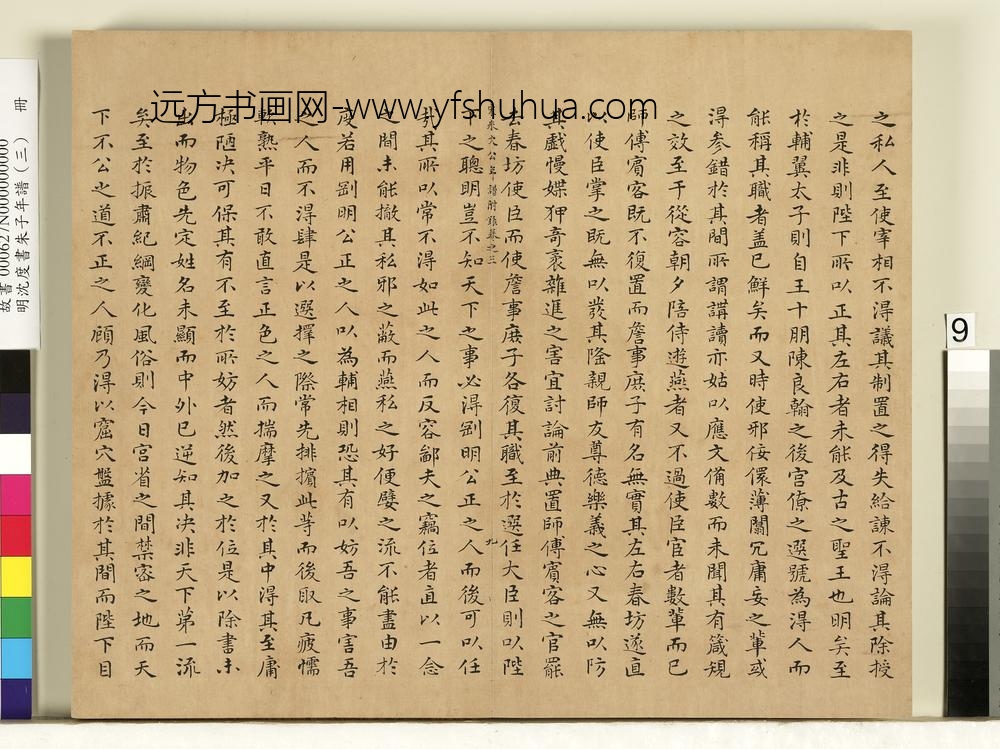 之私人至使宰相不得議其制置之得失給諫不得論其除授
之是非則陛下所以正其左右者未能及古之聖王也明矣至
於輔翼太子則自王十朋陳良翰之後宮僚之選號為得人而
能稱其職者蓋已鮮矣而又時使邪佞儇薄闒冗庸妄之輩或
得參錯於其間所謂講讀亦姑以應文備數而未聞其有箴規
之效至于從容朝夕陪侍遊燕者又不過使臣宦者數輩而已
師傅賓客既不復置而詹事庶子有名無實其左右春坊遂直
以使臣掌之既無以發其隆親師友尊德樂義之心又無以防
其戲慢媟狎奇衺雜進之害宜討論前典置師傅賓客之官罷
去春坊使臣而使詹事庶子各復其職至於選任大臣則以陛
朱文公年譜附錄卷之三
九
下之聰明豈不知天下之事必得剛明公正之人而後可以任
哉其所以常不得如此之人而反容鄙夫之竊位者直以一念
之間未能撤其私邪之蔽而燕私之好便嬖之流不能盡由於
度若用剛明公正之人以為輔相則恐其有以妨吾之事害吾
之人而不得肆是以選擇之際常先排擯此等而後取凡疲懦
軟熟平日不敢直言正色之人而揣摩之又於其中得其至庸
極陋决可保其有不至於所妨者然後加之於位是以除書未
出而物色先定姓名未顯而中外已逆知其决非天下第一流
矣至於振肅紀綱變化風俗則今日宮省之間禁密之地而天
下不公之道不正之人顧乃得以窟穴盤據於其間而陛下目
远方书画网-www.yfshuhua.com
故書 00062/N000000000
明沈度書朱子年譜（三） 冊
9